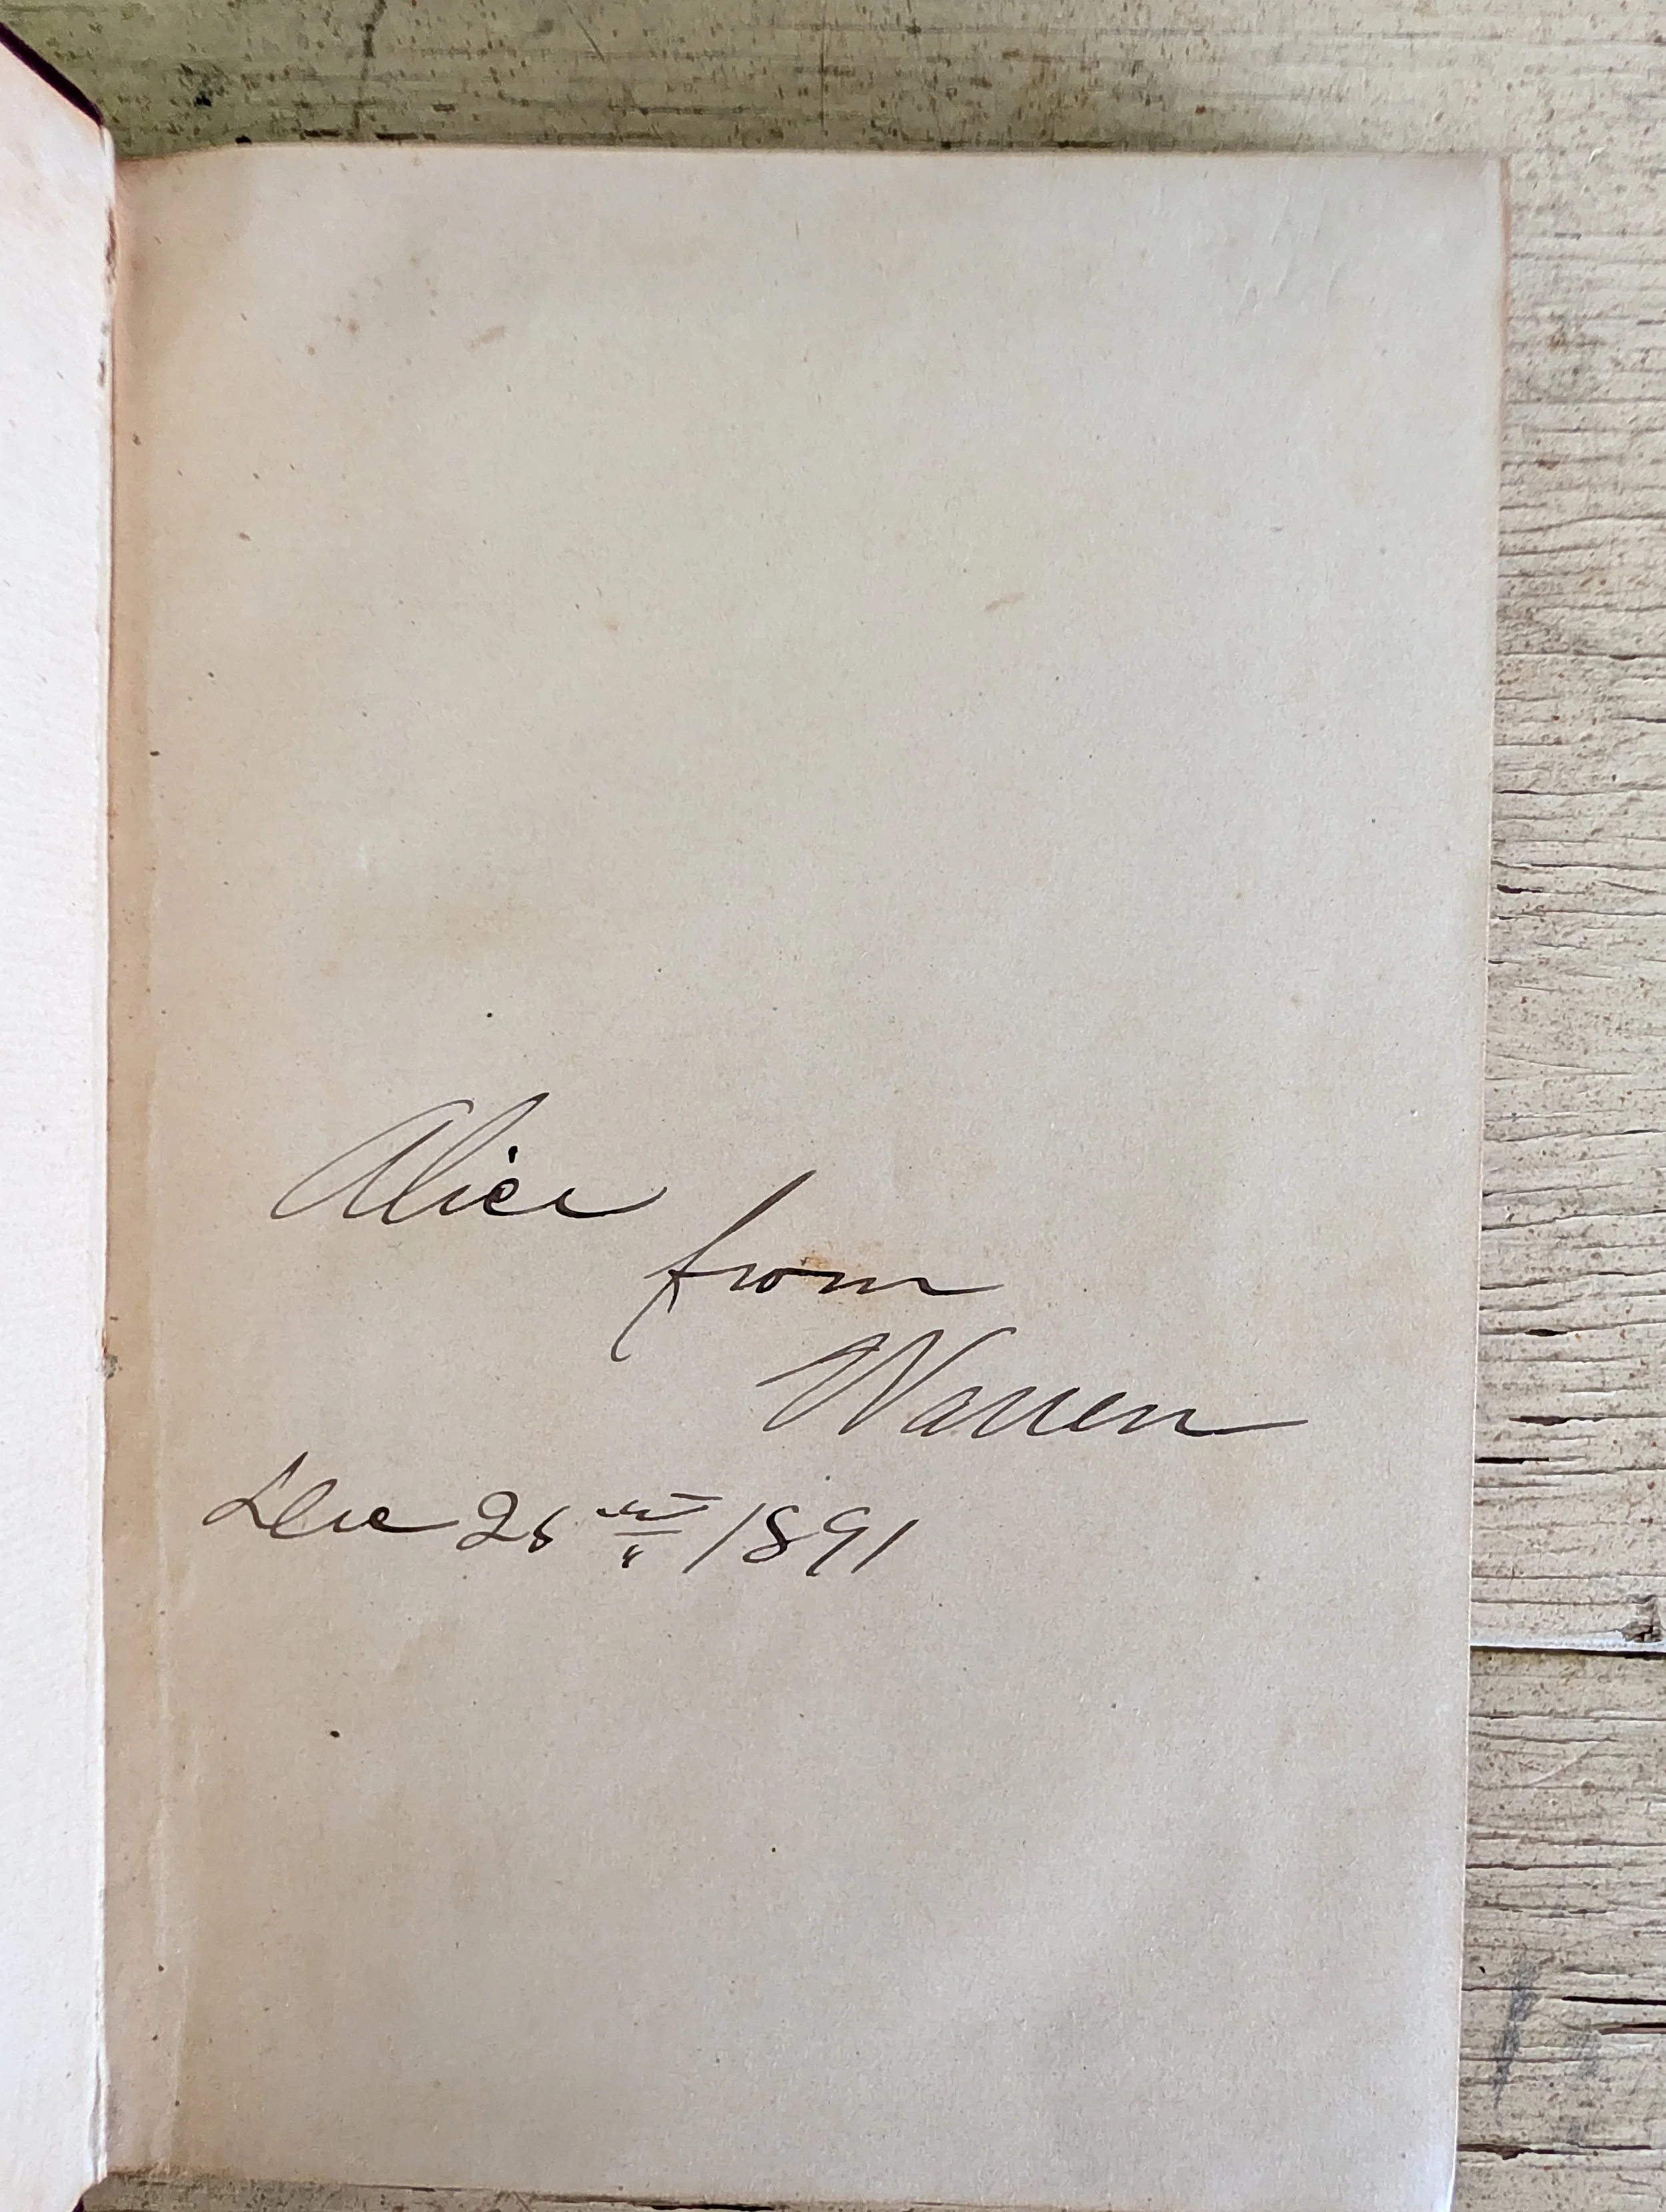 Alice
from
Warren
Dec 25th 1891